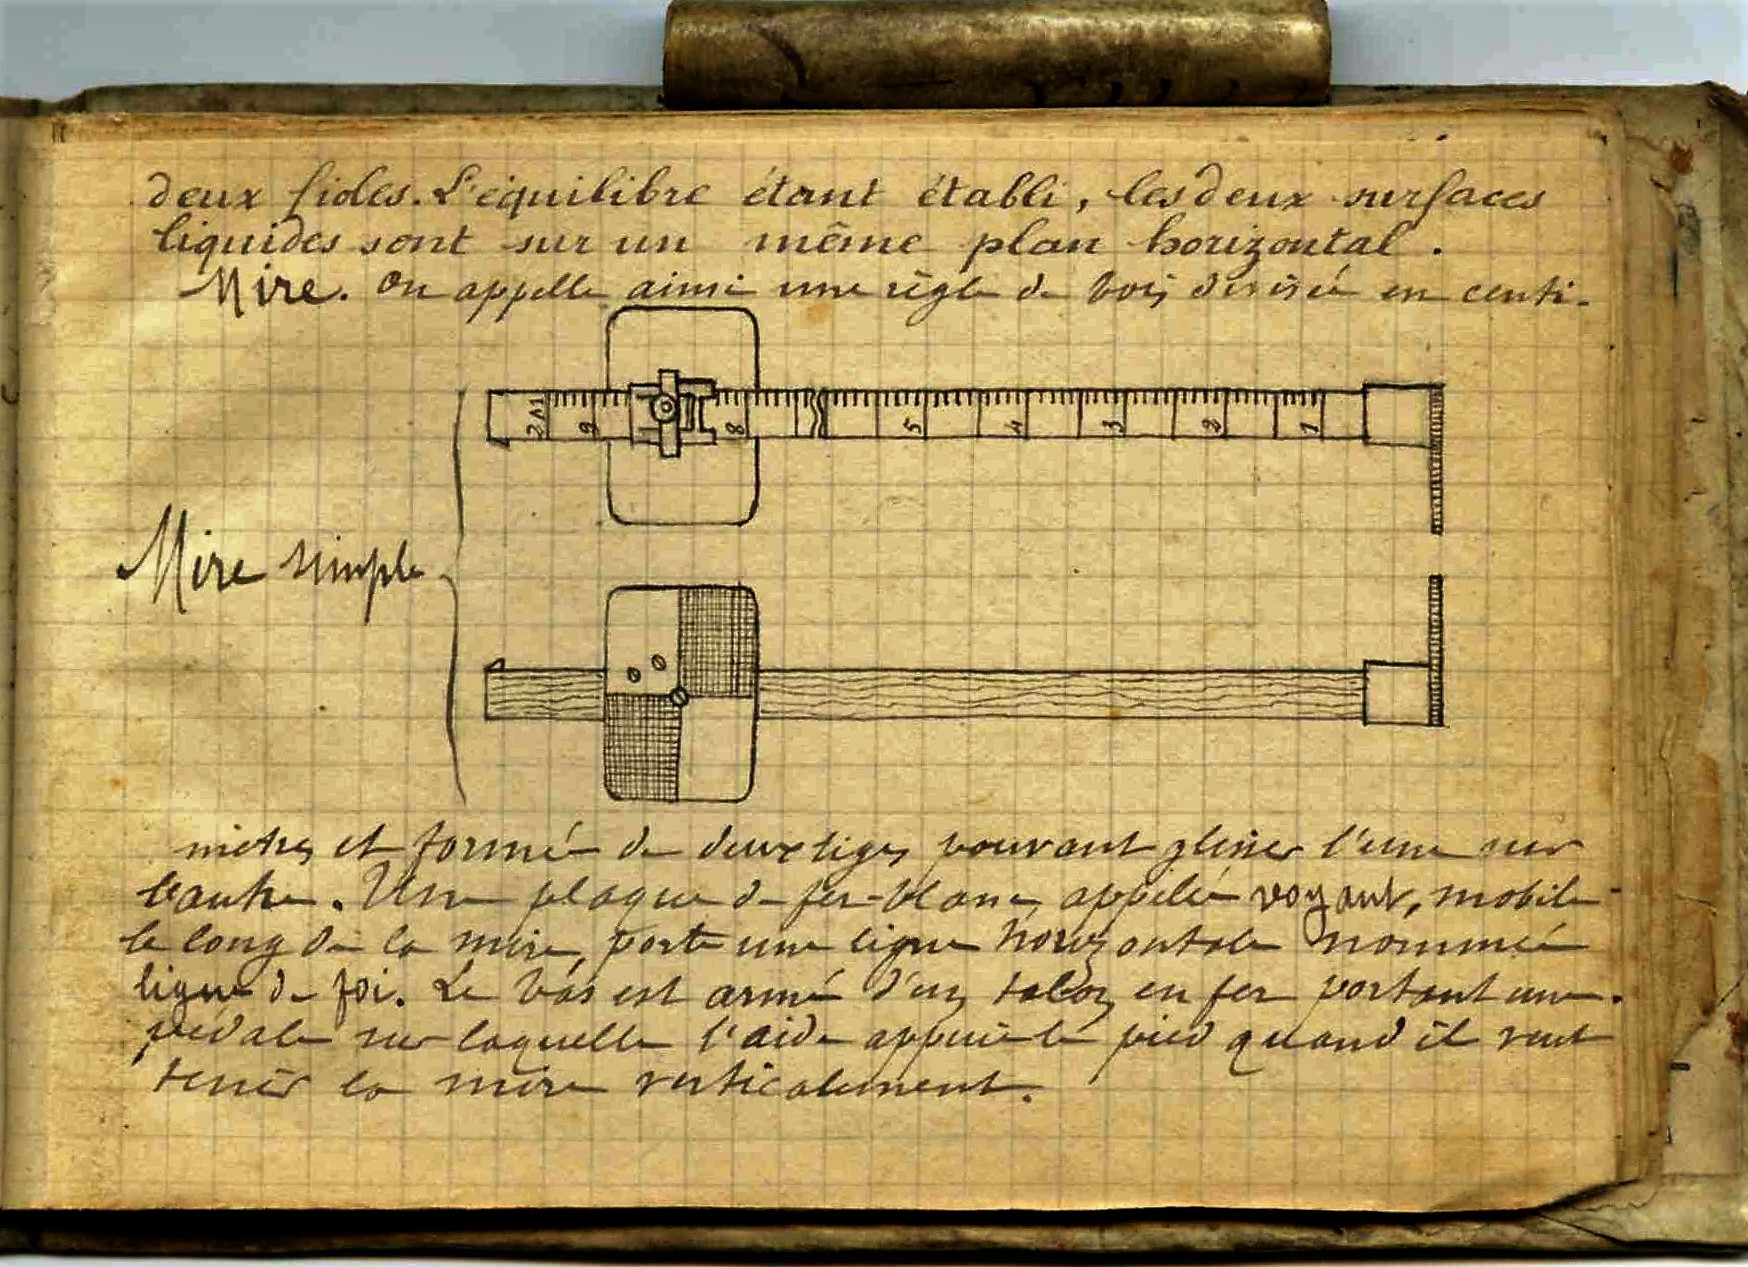 deux fioles. L'équilibre étant établi, les deux surfaces
liquides sont sur un même plan horizontal.
Mire. On appelle ainsi une règle de bois divisée en centi-
9 8 5 4 3 2 1
Mire simple
mètres et formée de deux tiges pouvant glisser l'une sur
l'autre. Une plaque de fer-blanc appelée voyant, mobile
le long de la mire, porte une ligne horizontale nommée
ligne de foi. Le bas est armé d'un talon en fer portant une
pédale sur laquelle l'aide appuie le pied quand il veut
tenir la mire verticalement.